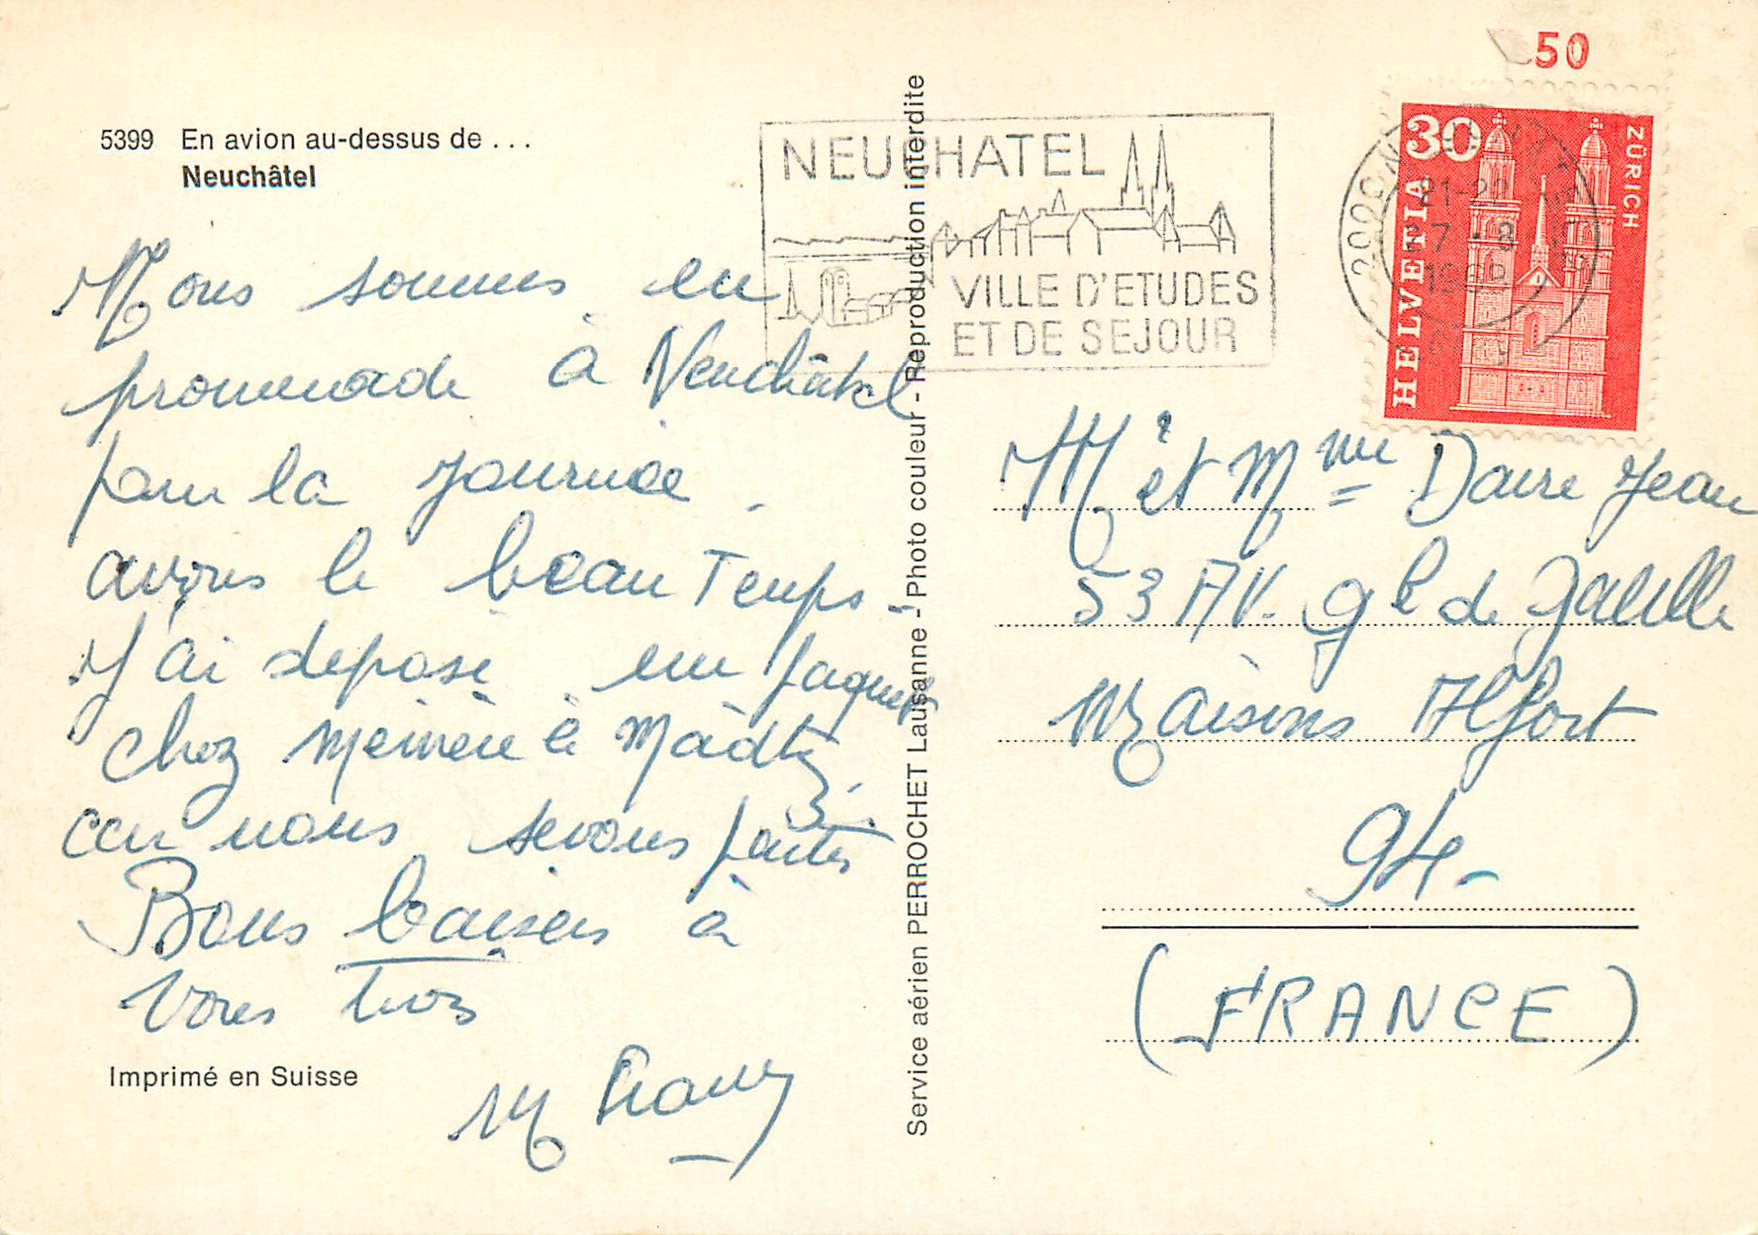 5399 En avion au-dessus de . . .
Neuchâtel
Nous sommes en
promenade à Neuchâtel
pour la journée.
avons le beau Temps.
J'ai deposé un paquet
chez à
car nous serons partis
Bons baisers à
vous trois
Imprimé en Suisse
Service aérien PERROCHET Lausanne - Photo couleur - Reproduction interdite
NEUCHATEL
VILLE D'ETUDES
ET DE SEJOUR
50
30
HELVETIA
ZÜRICH
21-22
M et Mme Daire Jean
53 AV. Gl de Gaulle
Maisons Alfort
94-
(FRANCE)